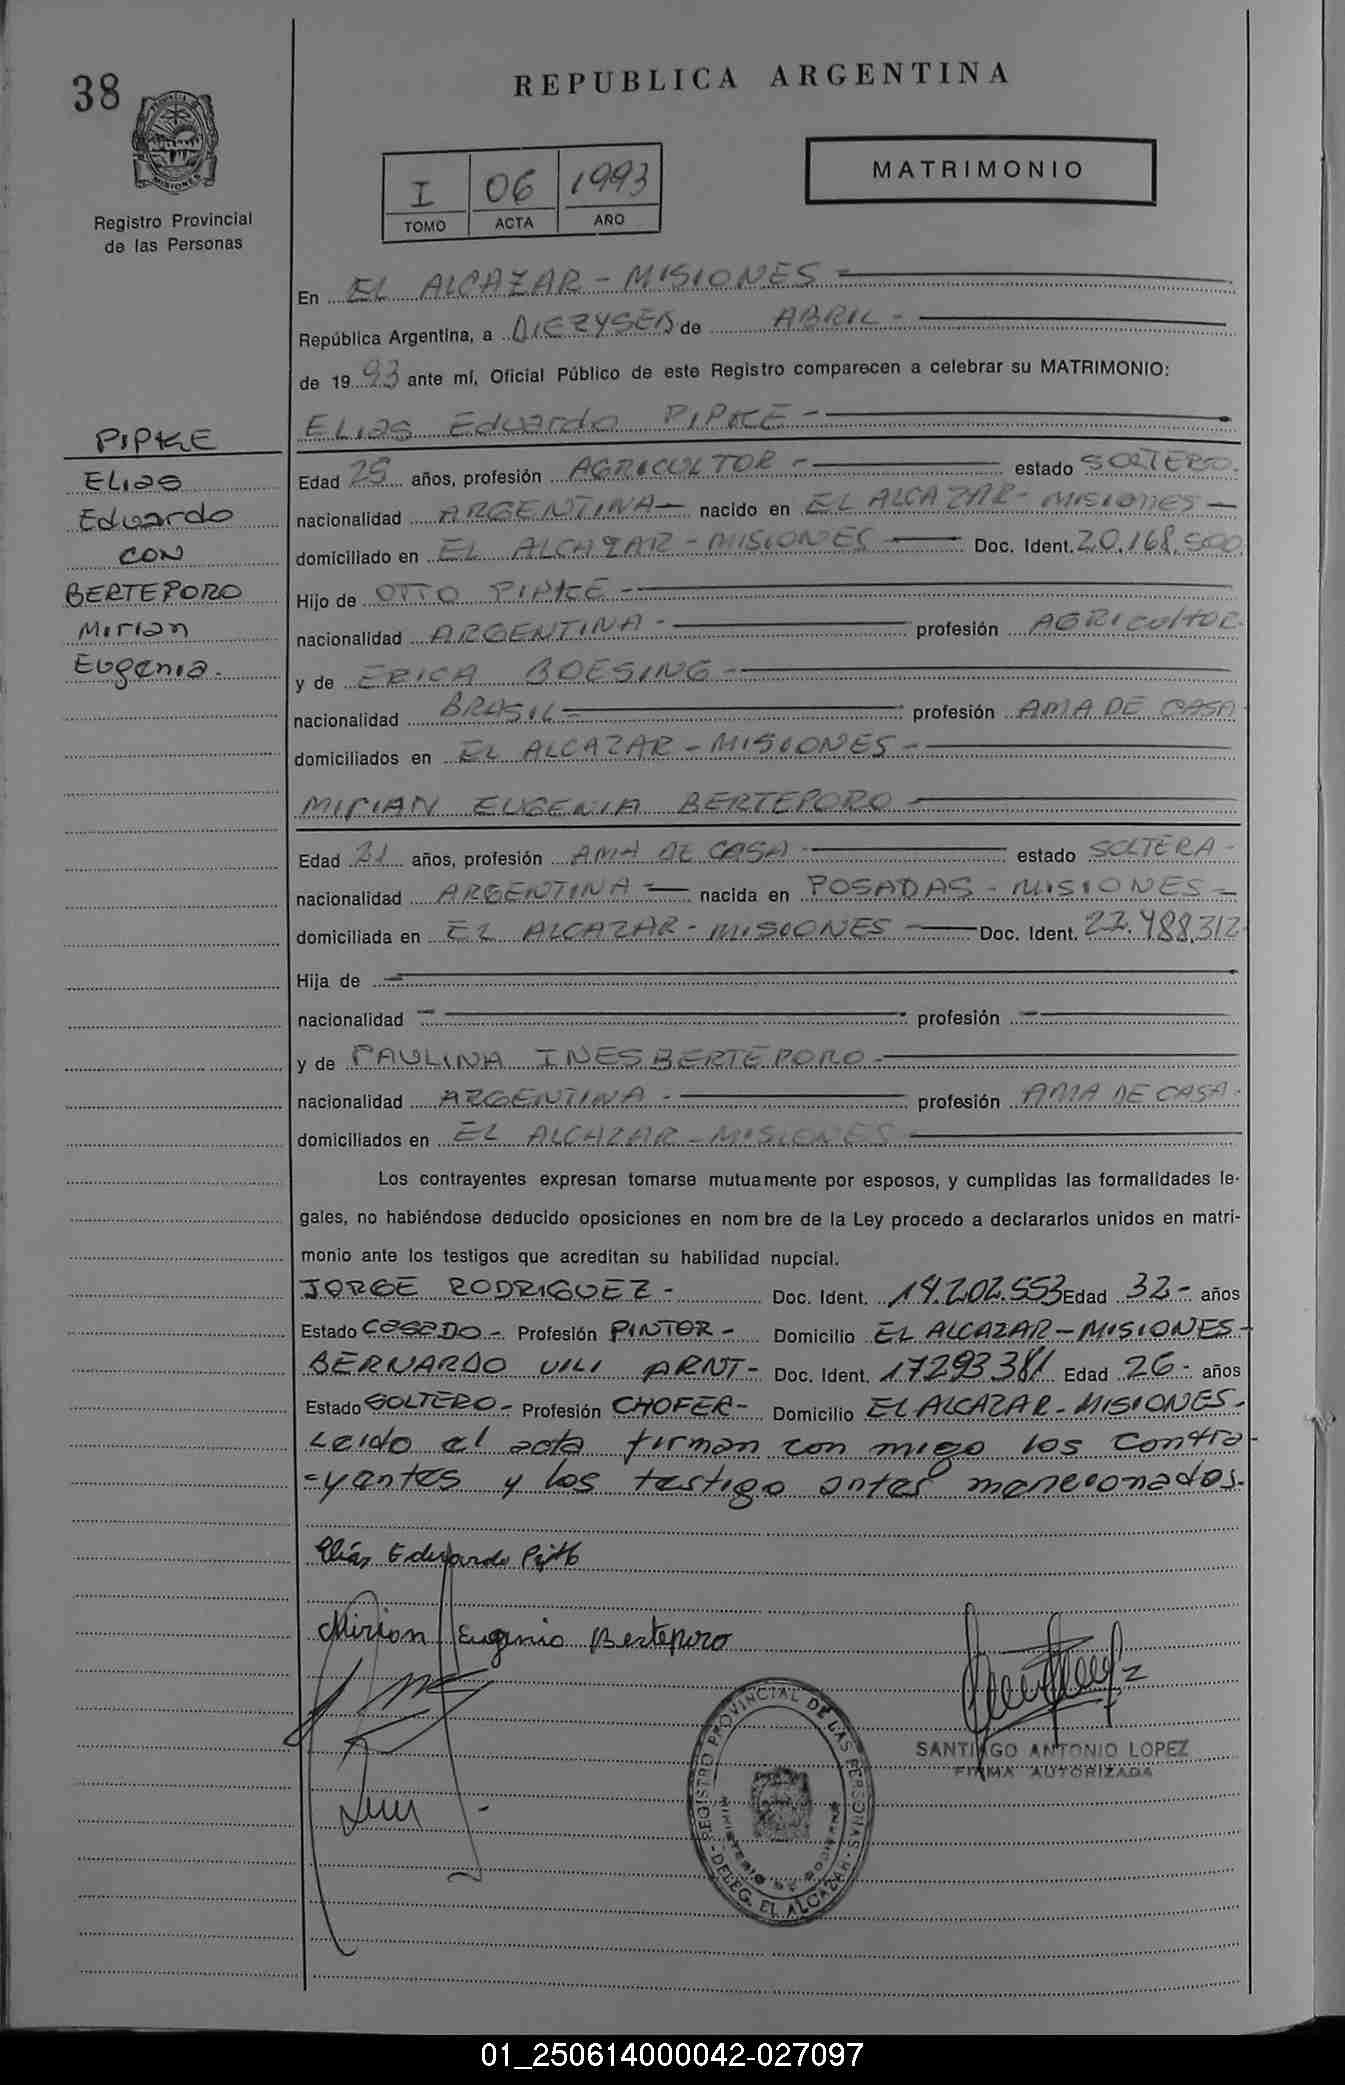 38
REPUBLICA ARGENTINA
MISIONES
Registro Provincial
de las Personas
I 06 1993
TOMO ACTA AÑO
MATRIMONIO
En EL ALCAZAR - MISIONES -
República Argentina, a DIEZYSEIS de ABRIL -
de 1993 ante mí, Oficial Público de este Registro comparecen a celebrar su MATRIMONIO:
ELias Eduardo PIPKE -
PIPKE
ELias
Eduardo
CON
BERTEPORO
Mirian
Eugenia.
Edad 25 años, profesión AGRICULTOR - estado SOLTERO.
nacionalidad ARGENTINA - nacido en EL ALCAZAR - MISIONES -
domiciliado en EL ALCAZAR - MISIONES - Doc. Ident. 20.168.500
Hijo de OTTO PIPKE -
nacionalidad ARGENTINA - profesión AGRICULTOR.
y de ERICA BOESING -
nacionalidad BRASIL - profesión AMA DE CASA
domiciliados en EL ALCAZAR - MISIONES -
MIRIAN EUGENIA BERTEPORO -
Edad 21 años, profesión AMA DE CASA - estado SOLTERA -
nacionalidad ARGENTINA - nacida en POSADAS - MISIONES -
domiciliada en EL ALCAZAR - MISIONES - Doc. Ident. 22.488.312
Hija de -
nacionalidad - profesión -
y de PAULINA INES BERTEPORO -
nacionalidad ARGENTINA - profesión AMA DE CASA -
domiciliados en EL ALCAZAR - MISIONES -
Los contrayentes expresan tomarse mutuamente por esposos, y cumplidas las formalidades le-
gales, no habiéndose deducido oposiciones en nom bre de la Ley procedo a declararlos unidos en matri-
monio ante los testigos que acreditan su habilidad nupcial.
JORGE RODRIGUEZ - Doc. Ident. 14.202.553 Edad 32 - años
Estado CASADO - Profesión PINTOR - Domicilio EL ALCAZAR - MISIONES -
BERNARDO VILI ARNT - Doc. Ident. 17293381 Edad 26 - años
Estado SOLTERO - Profesión CHOFER - Domicilio EL ALCAZAR - MISIONES -
Leido el acta firman con migo los Contra
=yentes y los testigo antes mencionados.
Elias Eduardo
Mirian Eugenia Berteporo
REGISTRO PROVINCIAL DE LAS PERSONAS
MINISTERIO DE GOBIERNO
DELEG. EL ALCAZAR
SANTIAGO ANTONIO LOPEZ
FIRMA AUTORIZADA
01_250614000042-027097